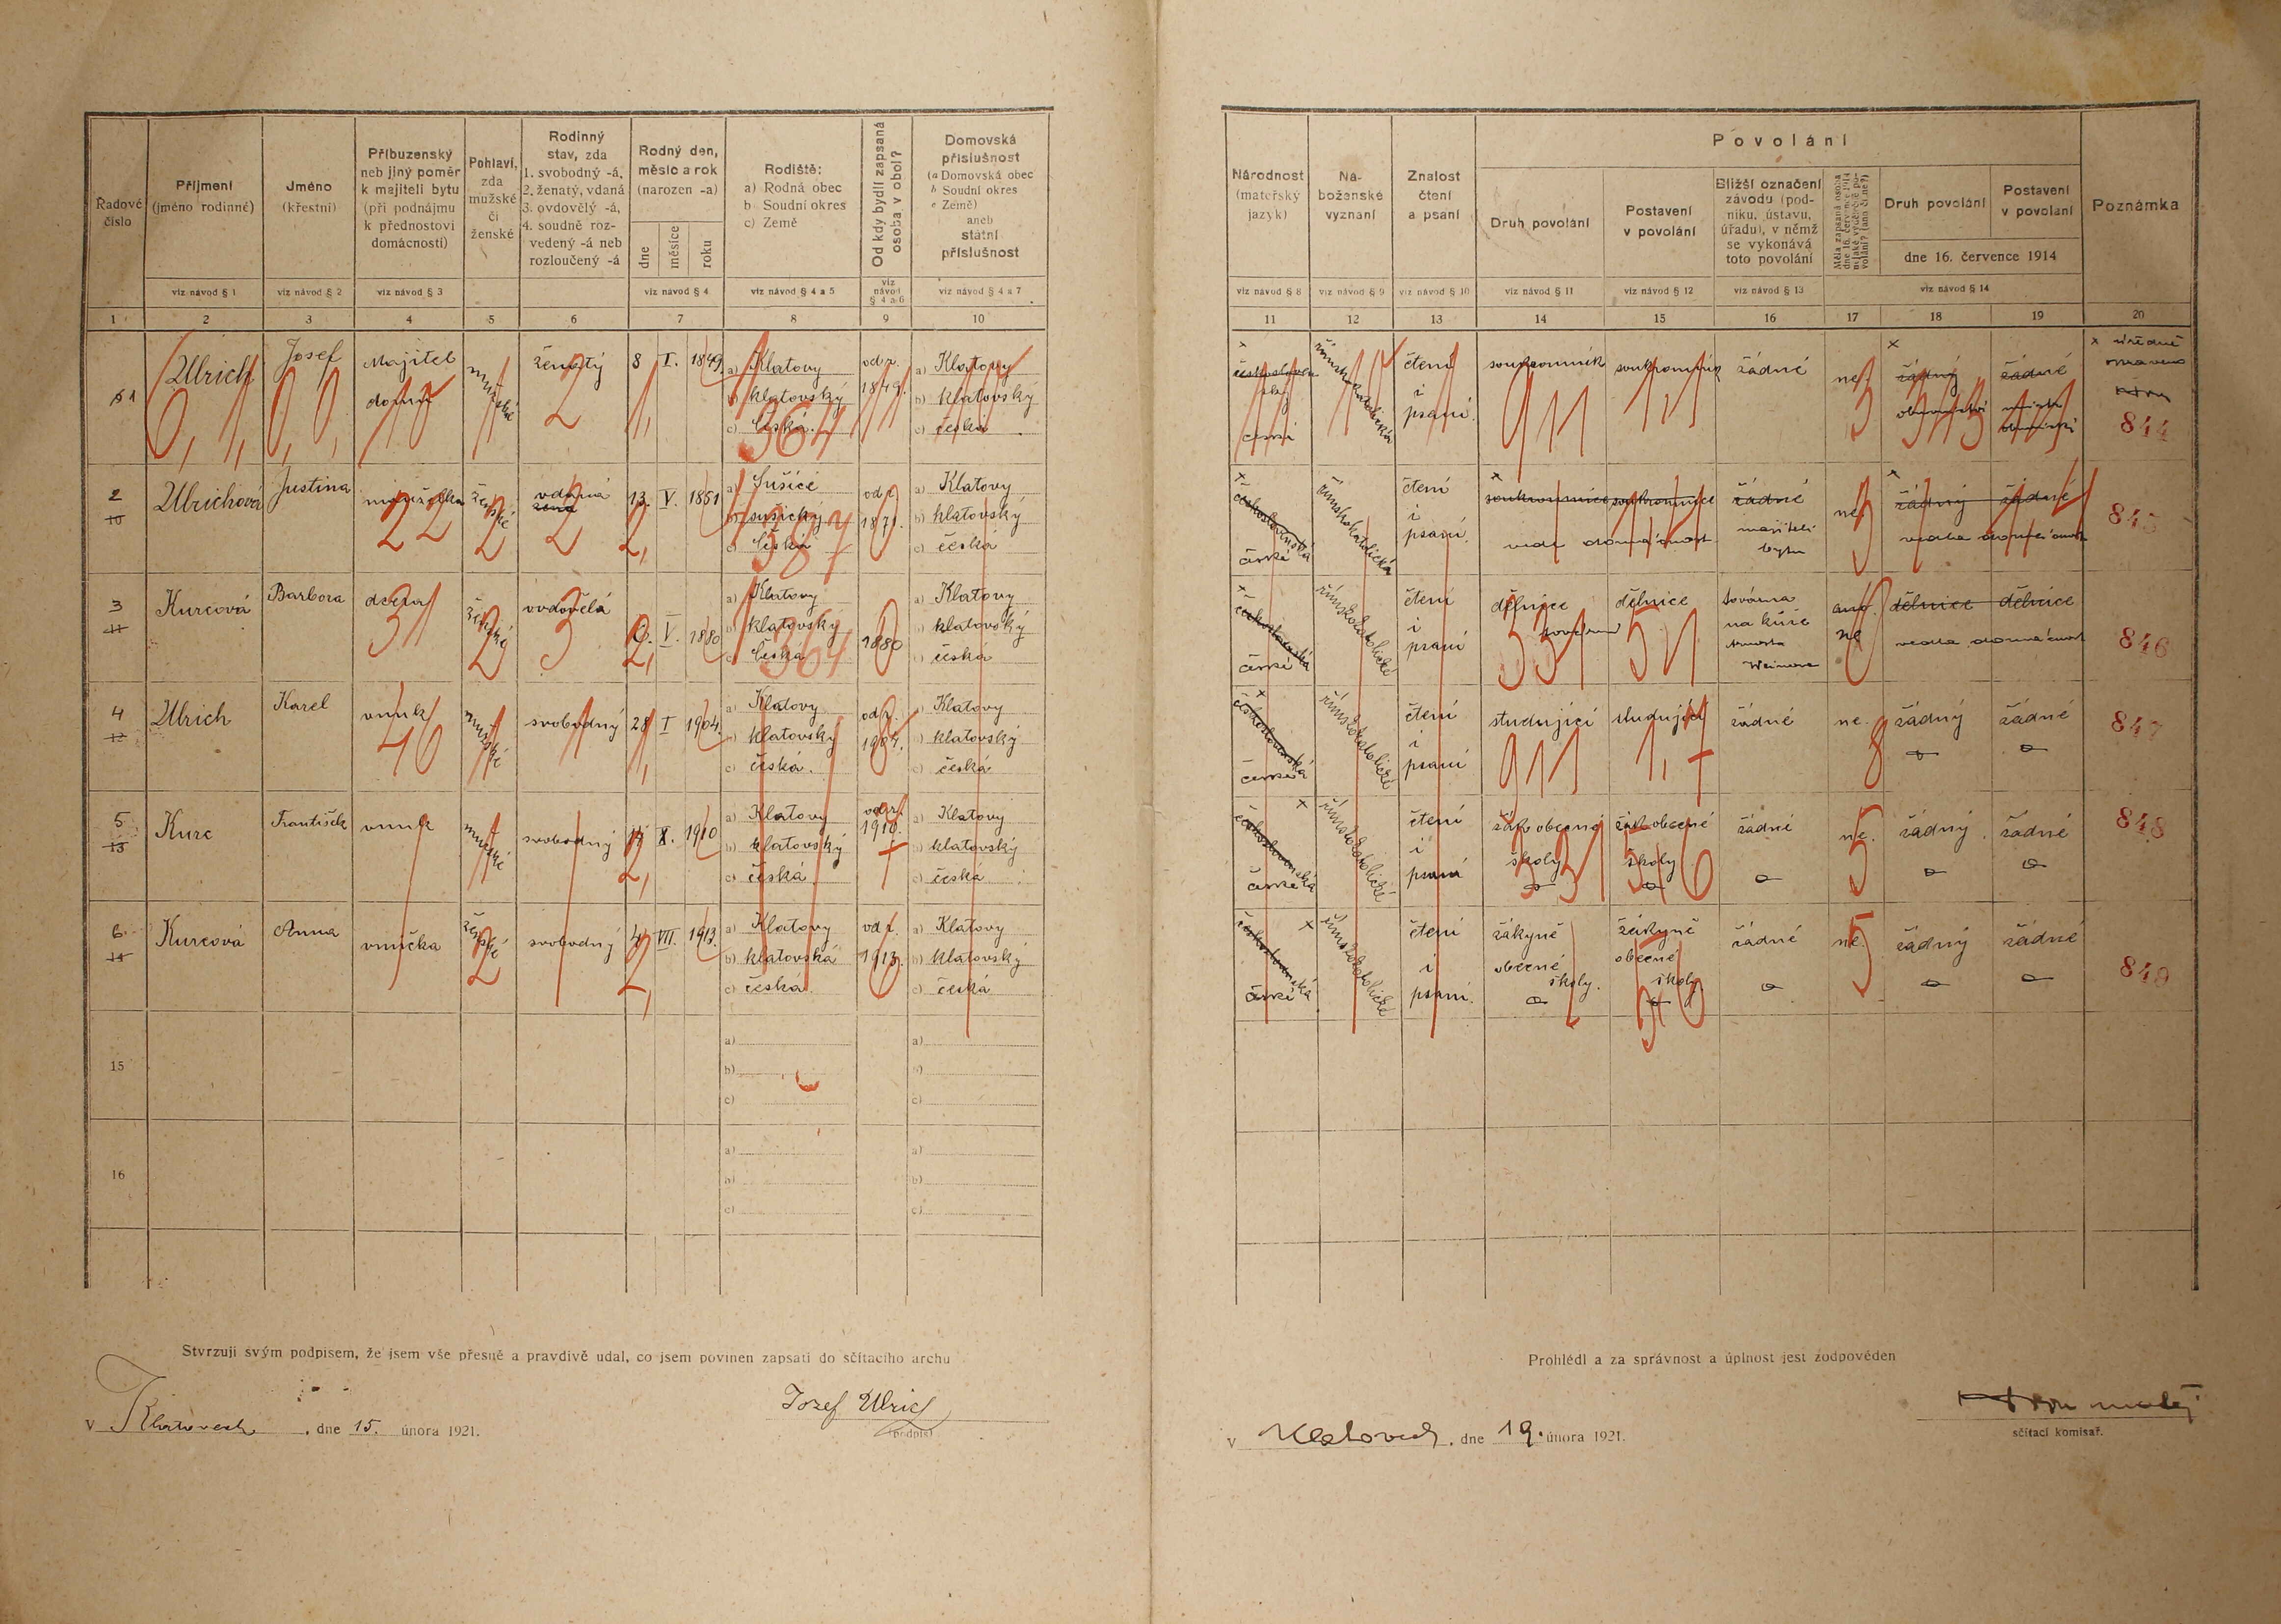 Řadové číslo
Příjmení (jméno rodinné)
Jméno (křestní)
Příbuzenský neb jiný poměr k majiteli bytu (při podnájmu k přednostovi domácnosti)
Pohlaví, zda mužské či ženské
Rodinný stav, zda 1. svobodný -á, 2. ženatý, vdaná 3. ovdovělý -á, 4. soudně rozvedený -á neb rozloučený -á
Rodný den, měsíc a rok (narozen -a)
dne
měsíce
roku
Rodiště: a) Rodná obec b) Soudní okres c) Země
Od kdy bydlí zapsaná osoba v obci?
Domovská příslušnost (a Domovská obec b Soudní okres c Země) aneb státní příslušnost
viz návod § 1
viz návod § 2
viz návod § 3
viz návod § 4
viz návod § 4 a 5
viz návod § 4 a 6
viz návod § 4 a 7
1 2 3 4 5 6 7 8 9 10
1 Ulrich Josef Majitel domu mužské ženatý 8 I. 1849 a) Klatovy b) klatovský c) česká od r. 1849. a) Klatovy b) klatovský c) česká
364
2 10 Ulrichová Justina manželka ženské vdaná 13. V. 1851 a) Sušice b) sušický c) česká od r. 1871. a) Klatovy b) klatovský c) česká
387
3 11 Kurcová Barbora dcera ženské ovdovělá V. 1880 a) Klatovy b) klatovský c) česká 1880 a) Klatovy klatovský česká
364
4 12 Ulrich Karel vnuk mužské svobodný 28 I 1904. a) Klatovy klatovský c) česká. od r. 1904. Klatovy klatovský c) česká
5 13 Kurc František vnuk mužské svobodný X. 1910 a) Klatovy b) klatovský c) česká od r. 1910. a) Klatovy b) klatovský c) česká
6 14 Kurcová Anna vnučka ženské svobodný 4 VII. 1913. a) Klatovy b) klatovská c) česká od r. 1913. a) Klatovy b) klatovský c) česká
15 a) b) c) a) b) c)
16 a) b) c) a) b) c)
Stvrzuji svým podpisem, že jsem vše přesně a pravdivě udal, co jsem povinen zapsati do sčítacího archu
Josef Ulrich
V Klatovech, dne 15. února 1921.
(podpis)
Národnost (mateřský jazyk)
Náboženské vyznání
Znalost čtení a psaní
Povolání
Druh povolání
Postavení v povolání
Bližší označení závodu (podniku, ústavu, úřadu), v němž se vykonává toto povolání
Měla zapsaná osoba dne 16. července 1914 nějaké výdělečné povolání? (ano či ne?)
Druh povolání
Postavení v povolání
dne 16. července 1914
Poznámka
viz návod § 8
viz návod § 9
viz návod § 10
viz návod § 11
viz návod § 12
viz návod § 13
viz návod § 14
11 12 13 14 15 16 17 18 19 20
česká římskokatolická čtení i psaní. soukromník soukromník žádné ne. žádný žádné x úředně opraveno
911 844
československá české římskokatolická čtení i psaní. soukromnice soukromnice vede domácnost žádné majiteli bytu ne žádný žádné vedla domácnost
845
československá české římskokatolické čtení i psaní dělnice dělnice továrna na kůže ano. ne dělnice dělnice vedla domácnost
846
československá české římskokatolické čtení i psaní studující studující žádné ne. žádný žádné
911 847
československá české římskokatolické čtení i psaní žák obecné školy žák obecné školy žádné ne. žádný žádné
848
československá české římskokatolické čtení i psaní. žákyně obecné školy. žákyně obecné školy žádné ne. žádný žádné
849
Prohlédl a za správnost a úplnost jest zodpověden
V Klatovech, dne 19. února 1921.
sčítací komisař.